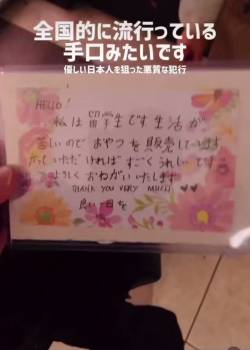 全国的に流行っている
手口みたいです
優しい日本人を狙った悪質な犯行
HELLO!
私は留学生です生活が
苦しいので おやつを販売しています
かっていただければすごくうれしいです
よろしくおねがいいたします
THANK YOU VERY MUCH ♥♥
良い一日を